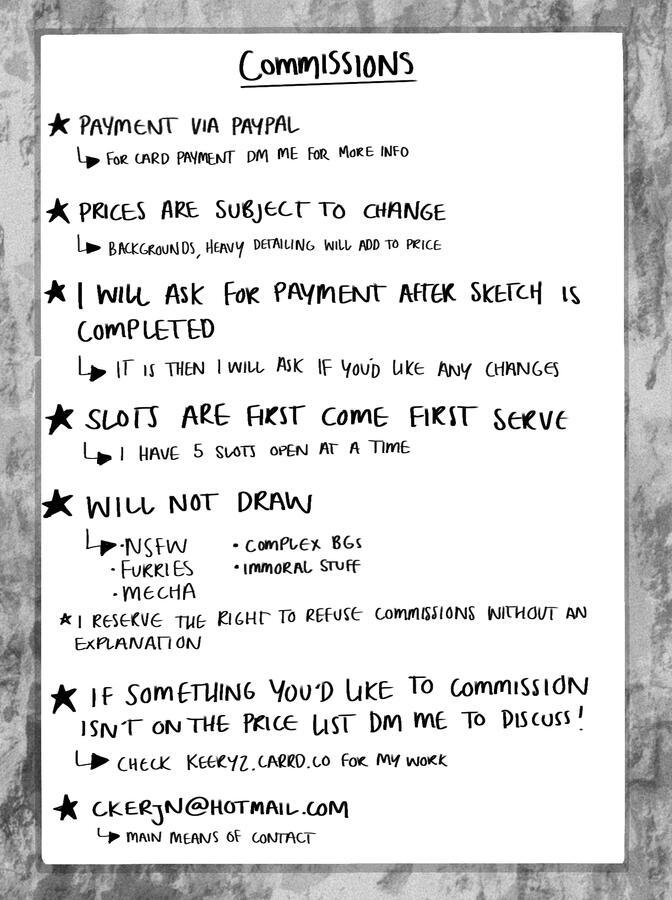 COMMISSIONS
★ PAYMENT VIA PAYPAL
↳ FOR CARD PAYMENT DM ME FOR MORE INFO
★ PRICES ARE SUBJECT TO CHANGE
↳ BACKGROUNDS, HEAVY DETAILING WILL ADD TO PRICE
★ I WILL ASK FOR PAYMENT AFTER SKETCH IS
COMPLETED
↳ IT IS THEN I WILL ASK IF YOU'D LIKE ANY CHANGES
★ SLOTS ARE FIRST COME FIRST SERVE
↳ I HAVE 5 SLOTS OPEN AT A TIME
★ WILL NOT DRAW
↳ · NSFW · COMPLEX BGs
· FURRIES · IMMORAL STUFF
· MECHA
★ I RESERVE THE RIGHT TO REFUSE COMMISSIONS WITHOUT AN
EXPLANATION
★ IF SOMETHING YOU'D LIKE TO COMMISSION
ISN'T ON THE PRICE LIST DM ME TO DISCUSS!
↳ CHECK KEERYZ.CARRD.CO FOR MY WORK
★ CKERJN@HOTMAIL.COM
↳ MAIN MEANS OF CONTACT